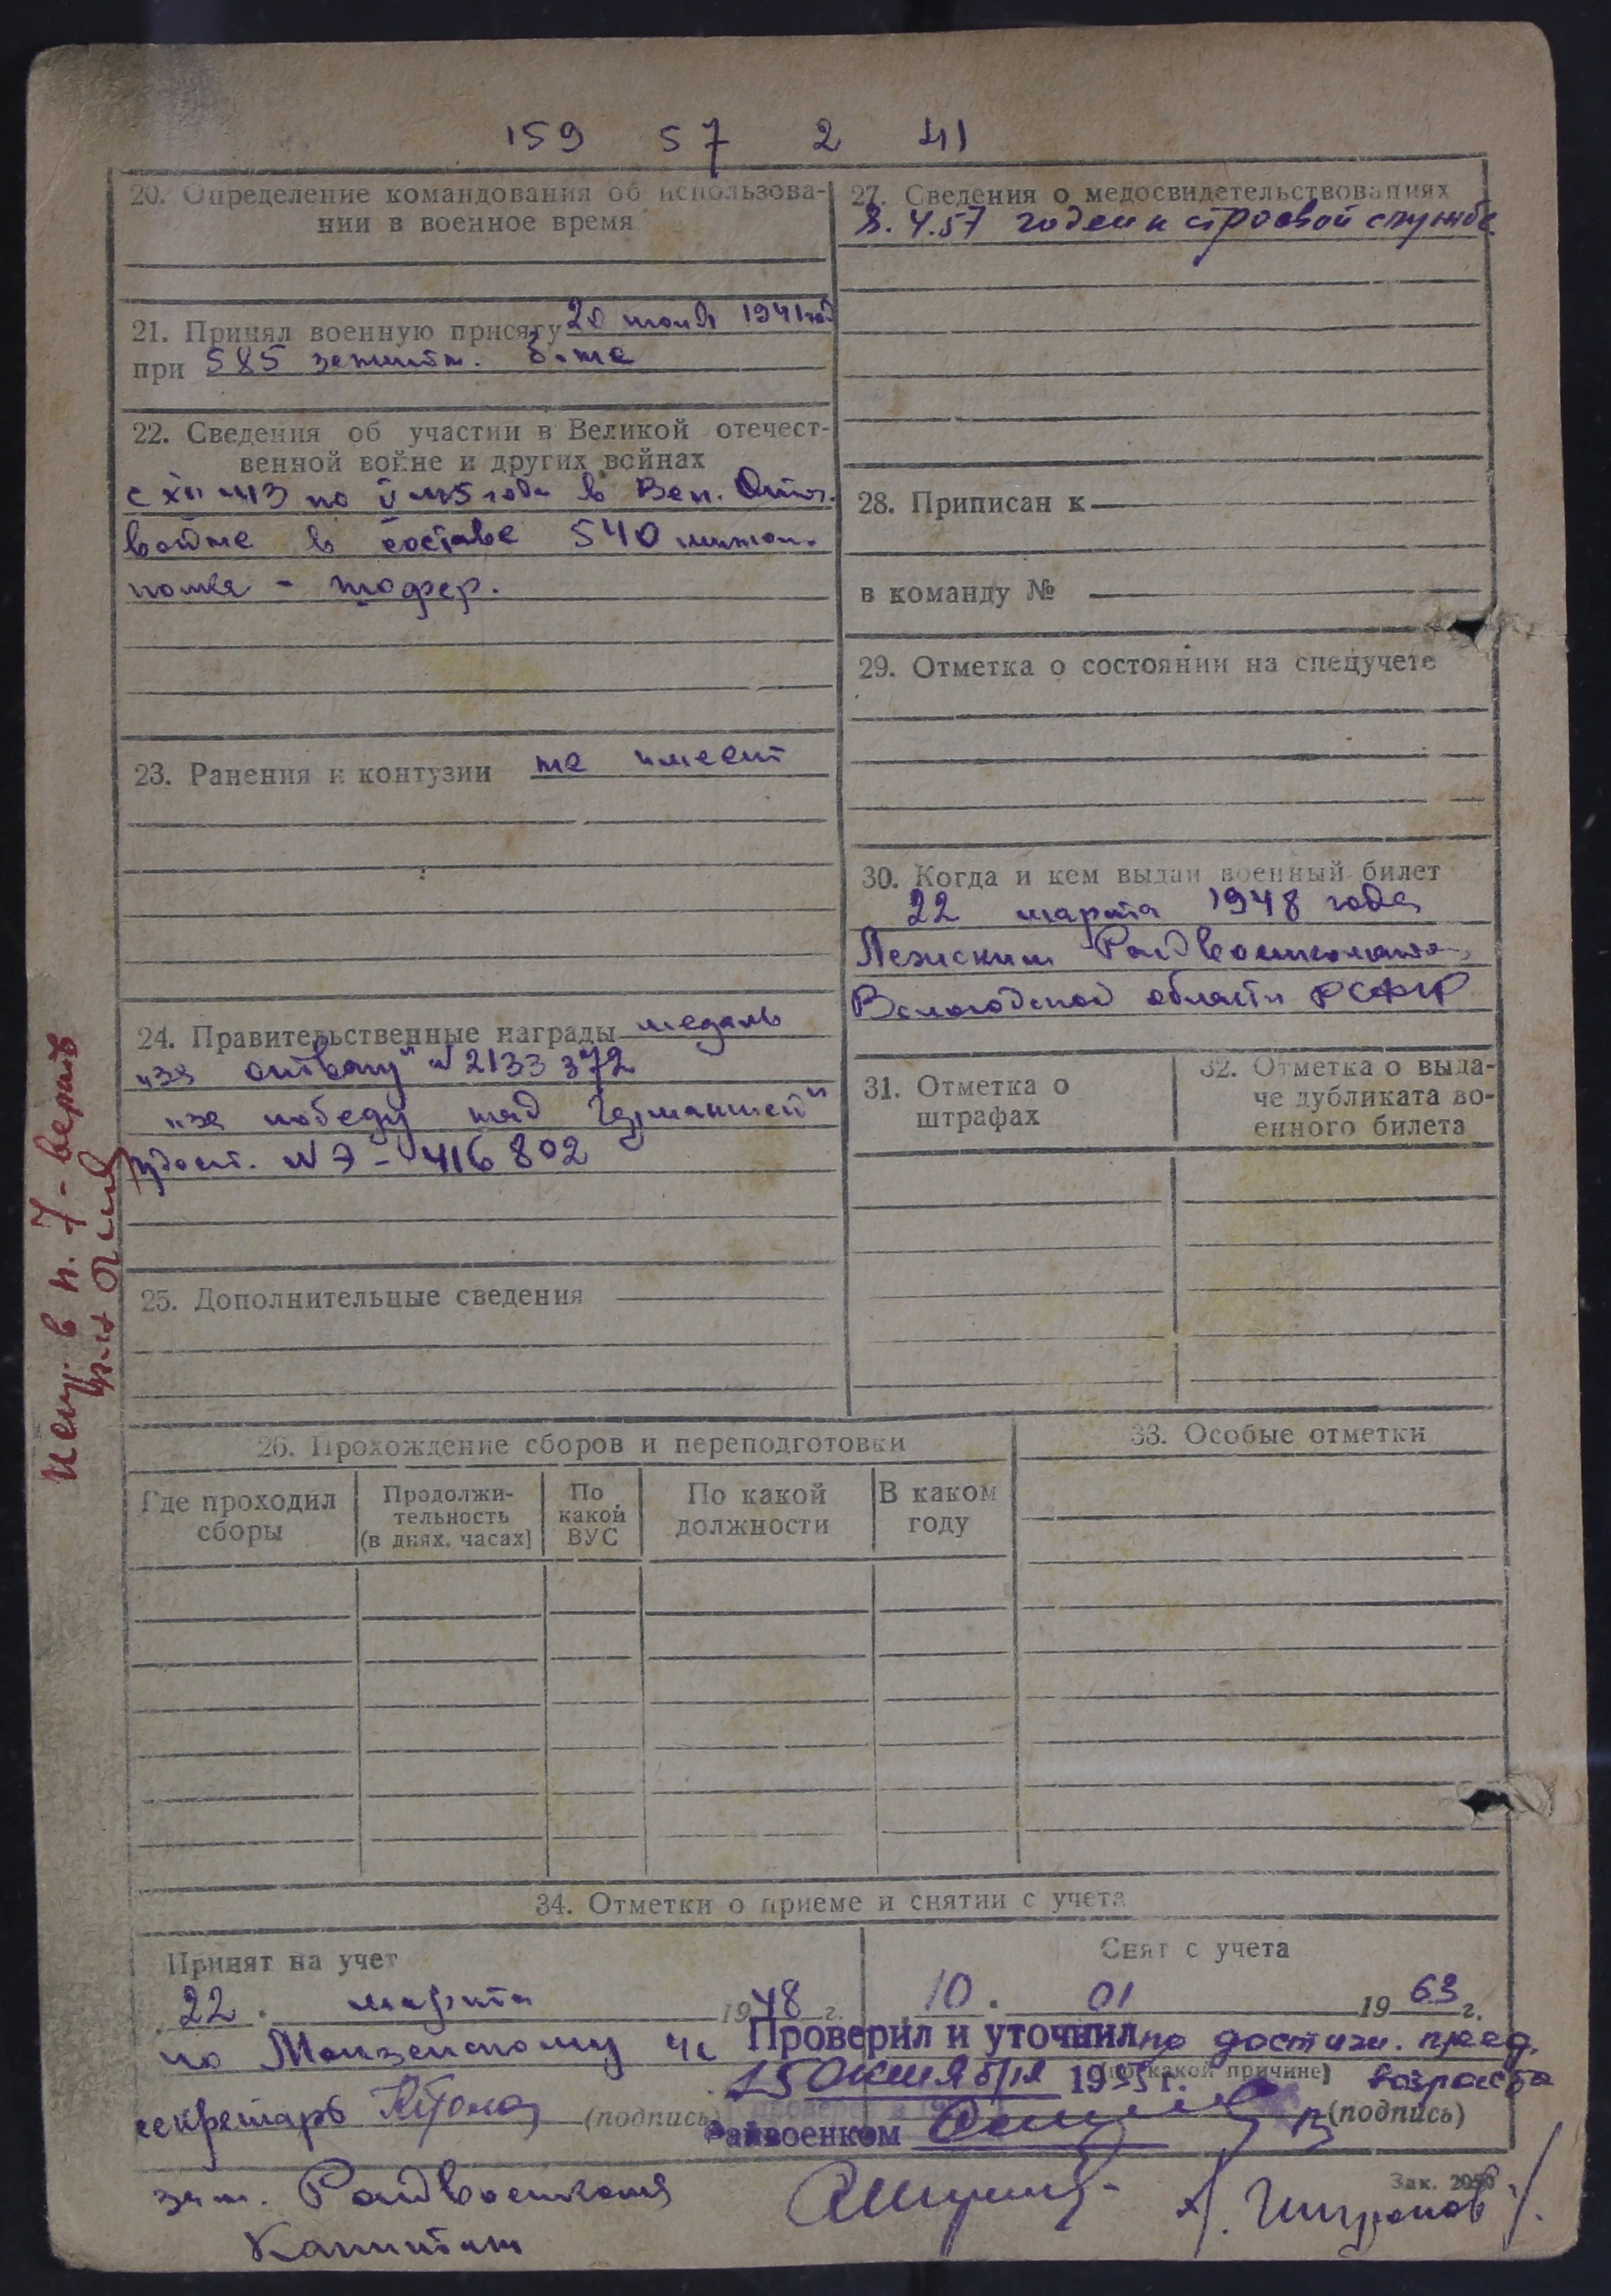 159 57 2 41
20. Определение командования об использова-
нии в военное время
21. Принял военную присягу 20 июня 1941 год
при 585 зенитн. б-не
22. Сведения об участии в Великой отечест-
венной войне и других войнах
с XII-43 по V-45 года в Вел. Отеч.
войне в составе 540 минтон.
полка - шофер.
23. Ранения и контузии не имеет
24. Правительственные награды медаль
"за отвагу" N 2133372
"за победу над Германией"
удост. N Э-416802
25. Дополнительные сведения
27. Сведения о медосвидетельствованиях
8.4.57 годен к строевой службе
28. Приписан к
в команду №
29. Отметка о состоянии на спецучете
30. Когда и кем выдан военный билет
22 марта 1948 года
Лежским Райвоенкомато
Вологодской области РСФСР
31. Отметка о
штрафах
32. Отметка о выда-
че дубликата во-
енного билета
в п. 7 - верить
26. Прохождение сборов и переподготовки
Где проходил
сборы
Продолжи-
тельность
(в днях, часах)
По
какой
ВУС
По какой
должности
В каком
году
33. Особые отметки
34. Отметки о приеме и снятии с учета
Принят на учет
22. марта 1948 г.
по Монзенскому
секретарь
(подпись)
Снят с учета
10. 01 1963 г.
по достиж. пред.
(по какой причине) возраста
(подпись)
Проверил и уточнил
15 октября 1955 г.
Райвоенком
зам. Райвоенкома
Капитан
Зак. 2050